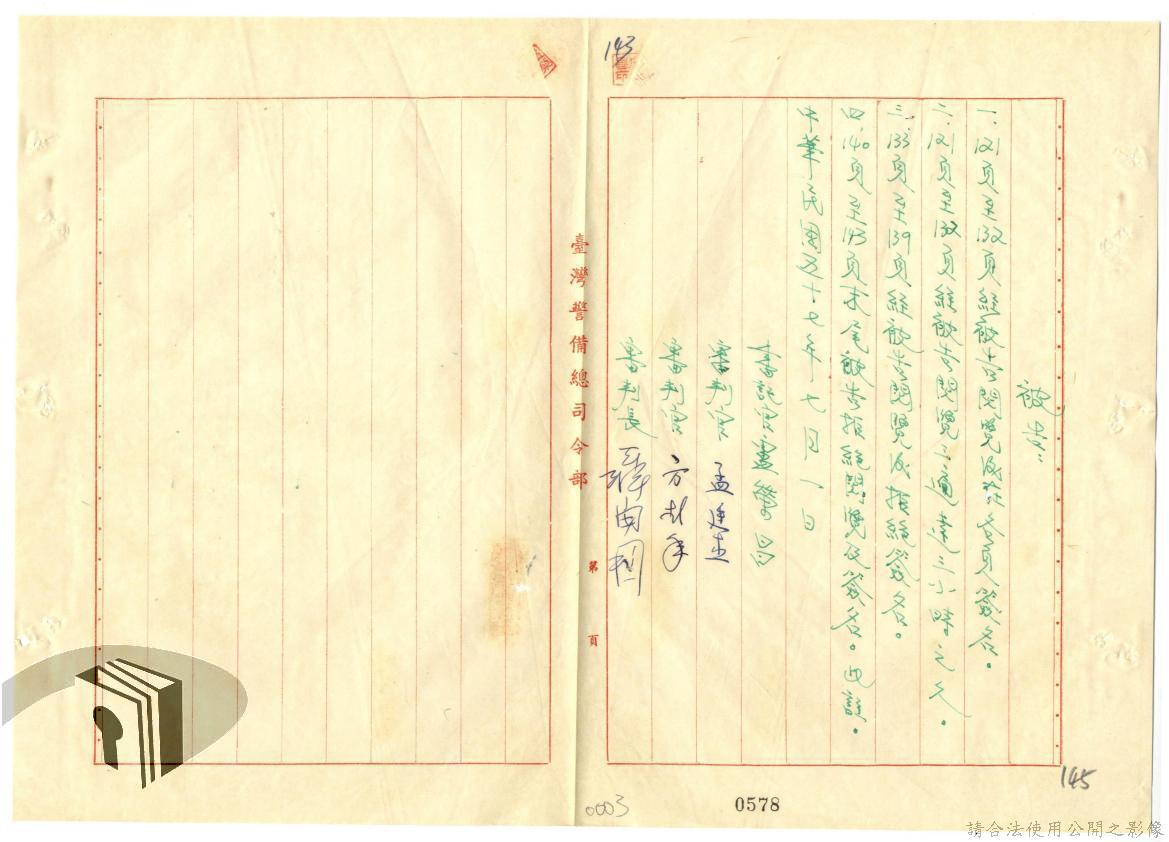 143
被告：
一、121頁至132頁經被告閱覽後於各頁簽名。
二、121頁至132頁經被告閱覽之適達三小時之久。
三、133頁至139頁經被告閱覽後拒絕簽名。
四、140頁至143頁末尾被告拒絕閱覽及簽名。此證。
中華民國五十七年七月一日
書記官
審判官 孟廷杰
審判官 方彭年
審判長 聶開國
臺灣警備總司令部
第 頁
145
0003
0578
請合法使用公開之影像